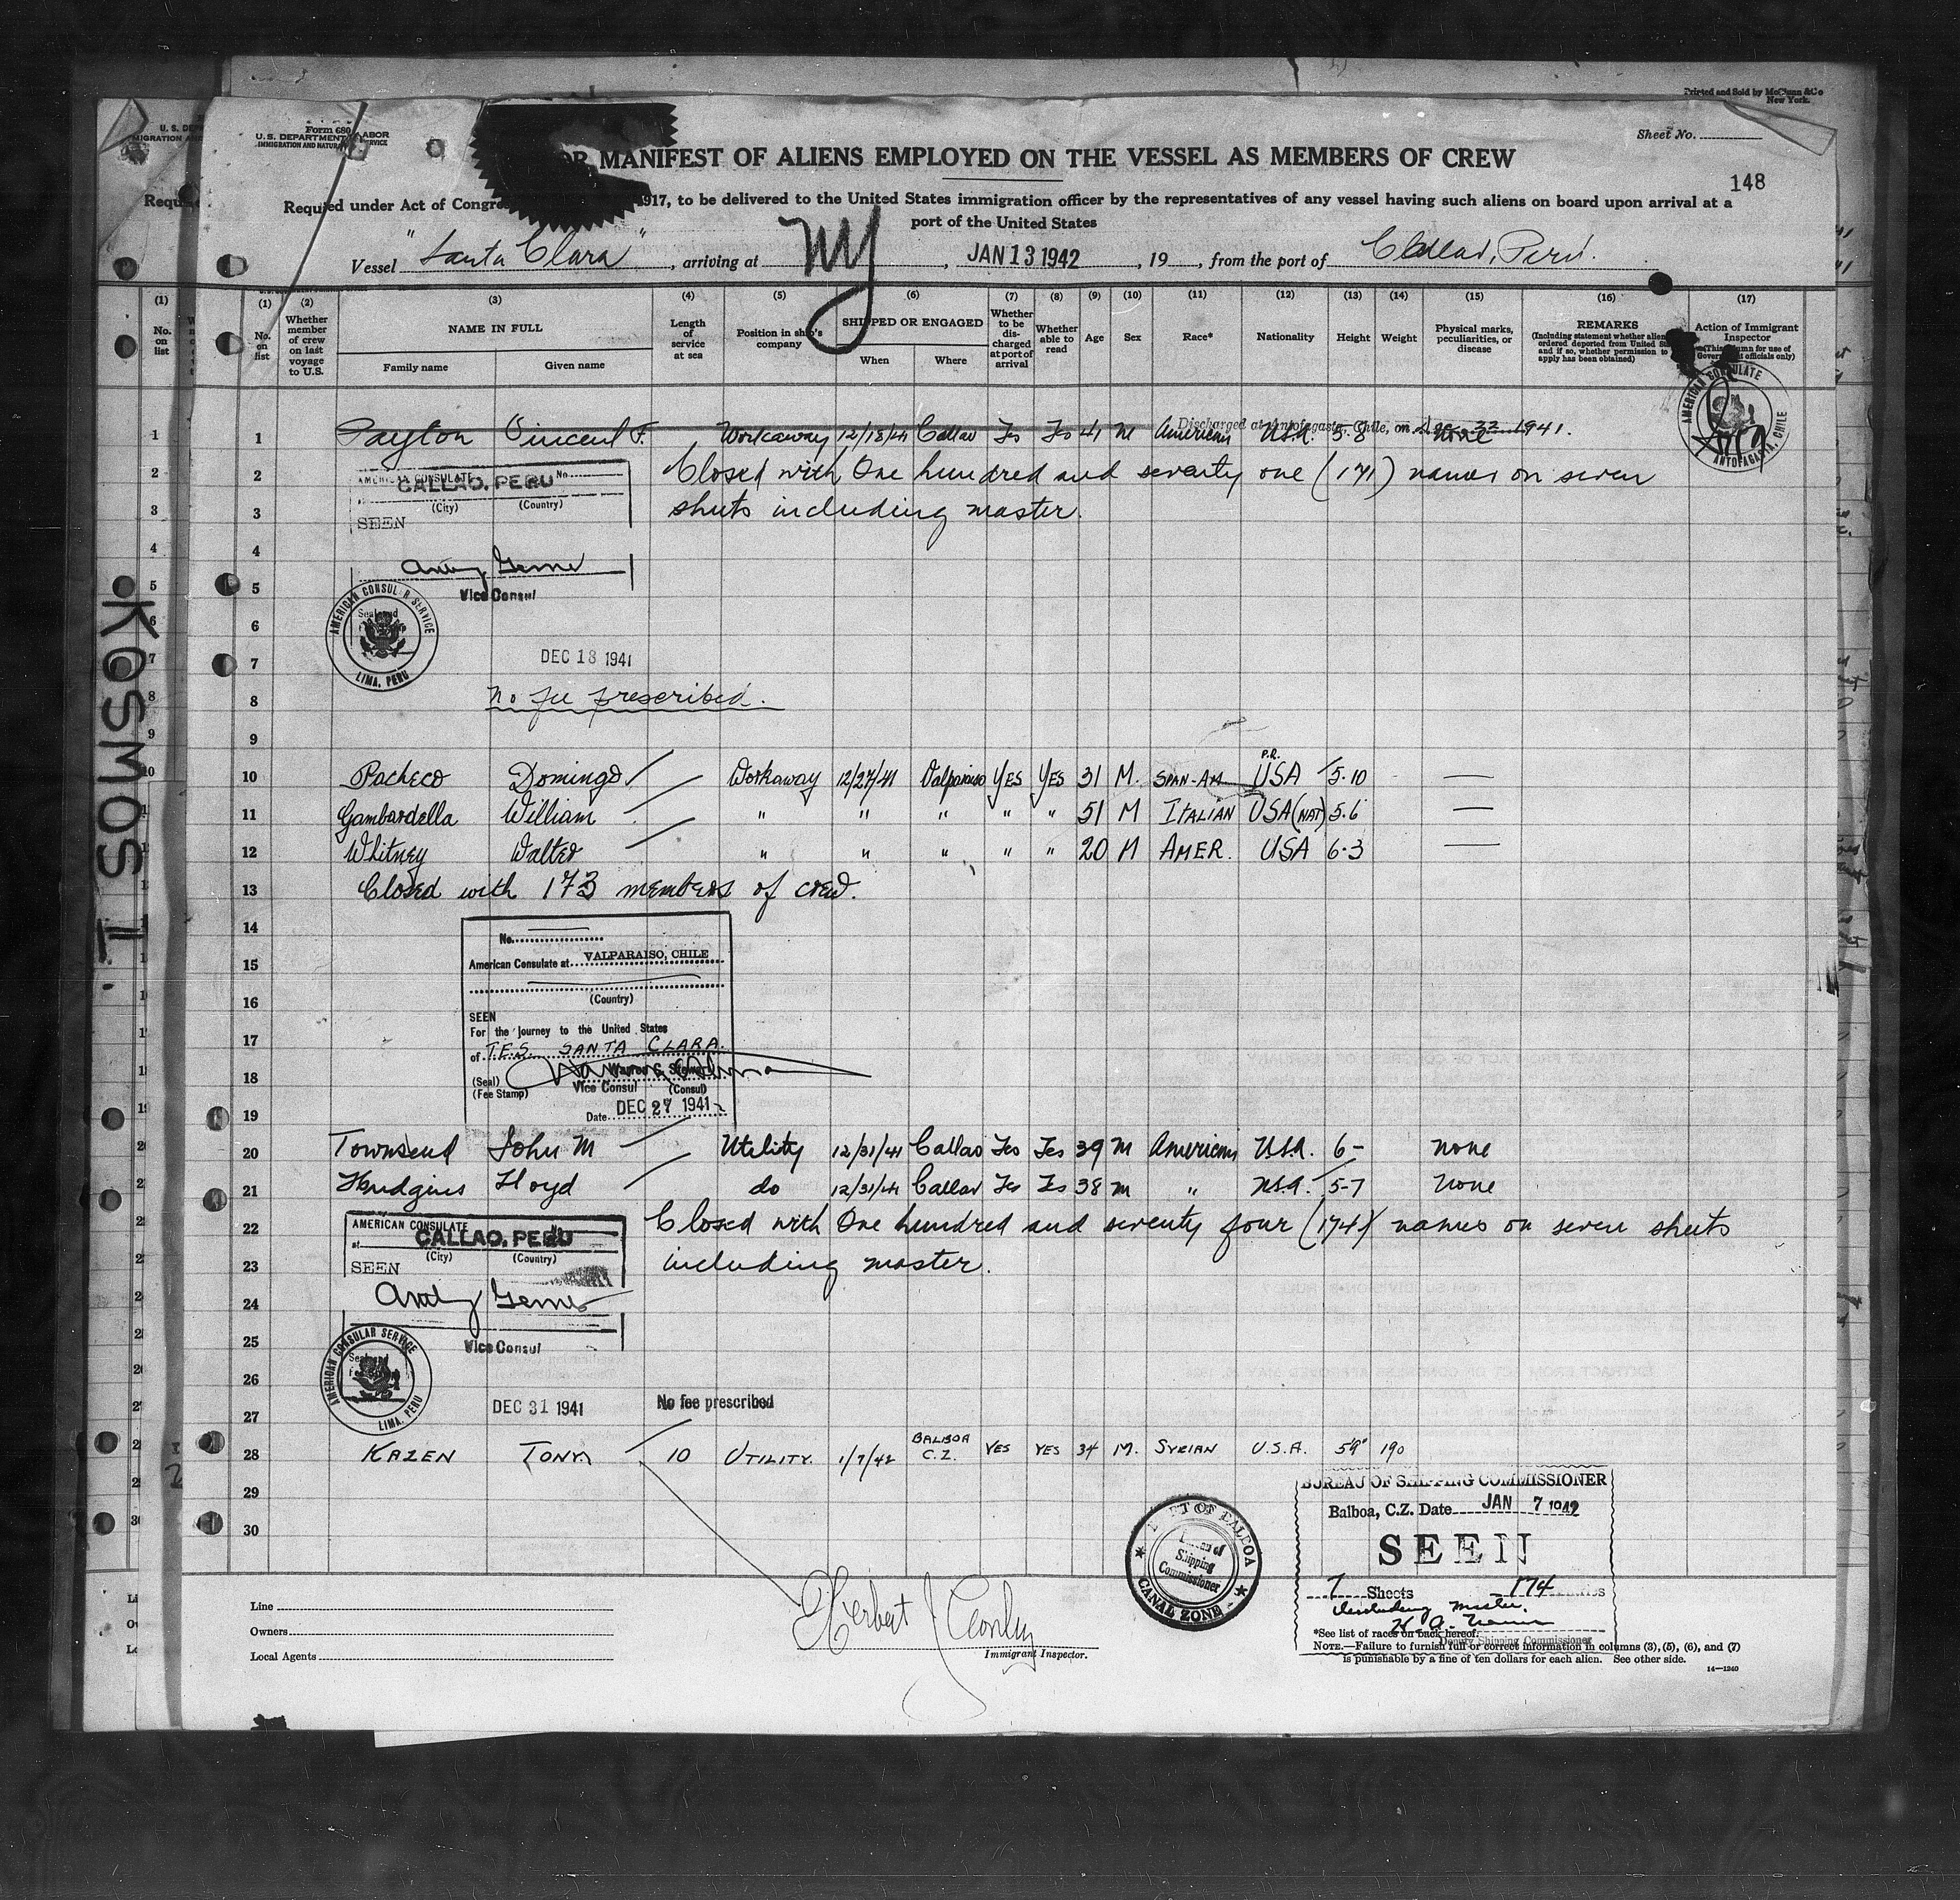 Printed and Sold by McClunn & Co
New York.
Form 680
U. S. DEPARTMENT LABOR
IMMIGRATION AND SERVICE
Sheet No.
OR MANIFEST OF ALIENS EMPLOYED ON THE VESSEL AS MEMBERS OF CREW
148
Required under Act of Congre 1917, to be delivered to the United States immigration officer by the representatives of any vessel having such aliens on board upon arrival at a
port of the United States
Vessel "Santa Clara", arriving at NY, JAN 13 1942, 19, from the port of Callao, Peru.
(1) (2) (3) (4) (5) (6) (7) (8) (9) (10) (11) (12) (13) (14) (15) (16) (17)
No. on list
Whether member of crew on last voyage to U.S.
NAME IN FULL
Family name Given name
Length of service at sea
Position in ship's company
SHIPPED OR ENGAGED
When Where
Whether to be discharged at port of arrival
Whether able to read
Age
Sex
Race*
Nationality
Height
Weight
Physical marks, peculiarities, or disease
REMARKS
(Including statement whether alien ordered deported from United and if so, whether permission to apply has been obtained)
Action of Immigrant Inspector
(This column for use of Government officials only)
AMERICAN CONSULATE
ANTOFAGASTA, CHILE
Discharged at Antofagasta, Chile, on Dec. 22 1941.
1 Payton Vincent F. Workaway 12/18/41 Callao Yes Yes 41 M American U.S.A. 5.8 none
2 Closed with One hundred and seventy one (171) names on seven
3 sheets including master.
AMERICAN CONSULATE No
CALLAO, PERU
(City) (Country)
SEEN
4
5
Vice Consul
AMERICAN CONSULAR SERVICE
LIMA, PERU
6
7 DEC 18 1941
8 No fee prescribed.
9
P.R.
10 Pacheco Domingo Workaway 12/27/41 Valparaiso YES YES 31 M. SPAN-AM USA 5.10
11 Gambardella William " " " " " 51 M ITALIAN USA (NAT) 5.6
12 Whitney Walter " " " " " 20 M AMER. USA 6.3
13 Closed with 173 members of crew.
14
No.
15 American Consulate at VALPARAISO, CHILE
16 (Country)
SEEN
For the journey to the United States
17 of T.E.S. SANTA CLARA.
18 (Seal)
(Fee Stamp) Vice Consul (Consul)
19 Date DEC 27 1941
20 Townsend John M Utility 12/31/41 Callao Yes Yes 39 M American U.S.A. 6- none
21 Hudgins Floyd do 12/31/41 Callao Yes Yes 38 M " U.S.A. 5-7 none
22 Closed with One hundred and seventy four (174) names on seven sheets
23 including master.
AMERICAN CONSULATE No
at CALLAO, PERU
(City) (Country)
SEEN
24
25 Vice Consul
AMERICAN CONSULAR SERVICE
LIMA, PERU
26 DEC 31 1941 No fee prescribed
27
28 KAZEN TONY 10 UTILITY. 1/7/42 BALBOA C.Z. YES YES 34 M. SYRIAN U.S.A. 5'9" 190
29
30
BUREAU OF SHIPPING COMMISSIONER
Balboa, C.Z. Date JAN 7 1942
SEEN
7 Sheets 174
Including Master.
Deputy Shipping Commissioner
PORT OF BALBOA
Bureau of Shipping Commissioner
CANAL ZONE
Line
Owners
Local Agents
Herbert J.
Immigrant Inspector.
*See list of races on back hereof.
NOTE.—Failure to furnish full or correct information in columns (3), (5), (6), and (7)
is punishable by a fine of ten dollars for each alien. See other side.
14—1240
KOSMOS I.